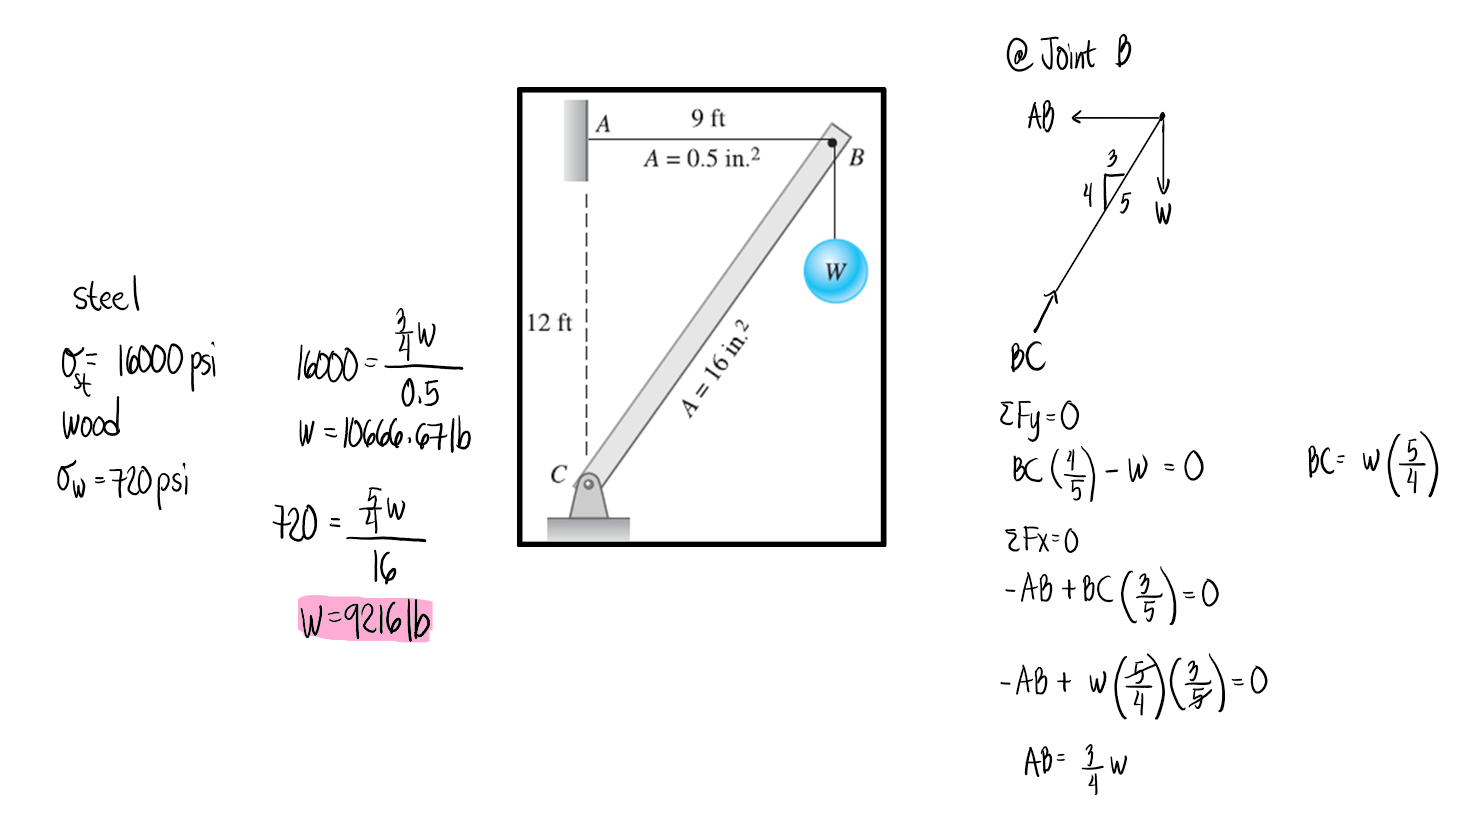 steel
σst = 16000 psi
wood
σw = 720 psi
16000 = 3/4 W / 0.5
W = 10666.67 lb
720 = 5/4 W / 16
W = 9216 lb
A
9 ft
A = 0.5 in.²
B
W
12 ft
A = 16 in.²
C
@ Joint B
AB
3
4
5
W
BC
ΣFy = 0
BC (4/5) - W = 0
BC = W (5/4)
ΣFx = 0
-AB + BC (3/5) = 0
-AB + W (5/4) (3/5) = 0
AB = 3/4 W